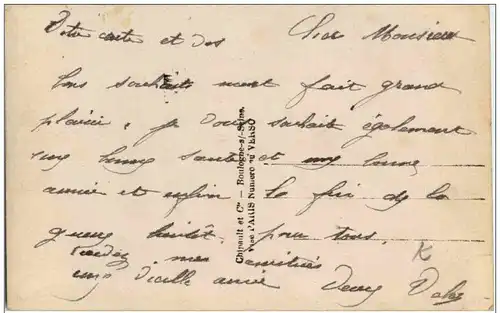 Cher Monsieur
Votre carte et vos
bons souhaits m'ont fait grand
plaisir, je vous souhait également
une bonne santé et une bonne
année et enfin la fin de la
guerre bientôt pour tous.
mes amitiés
une vieille amie
K
Chipault et Cie — Boulogne-s/-Seine.
Vues PARIS Numéro au VERSO